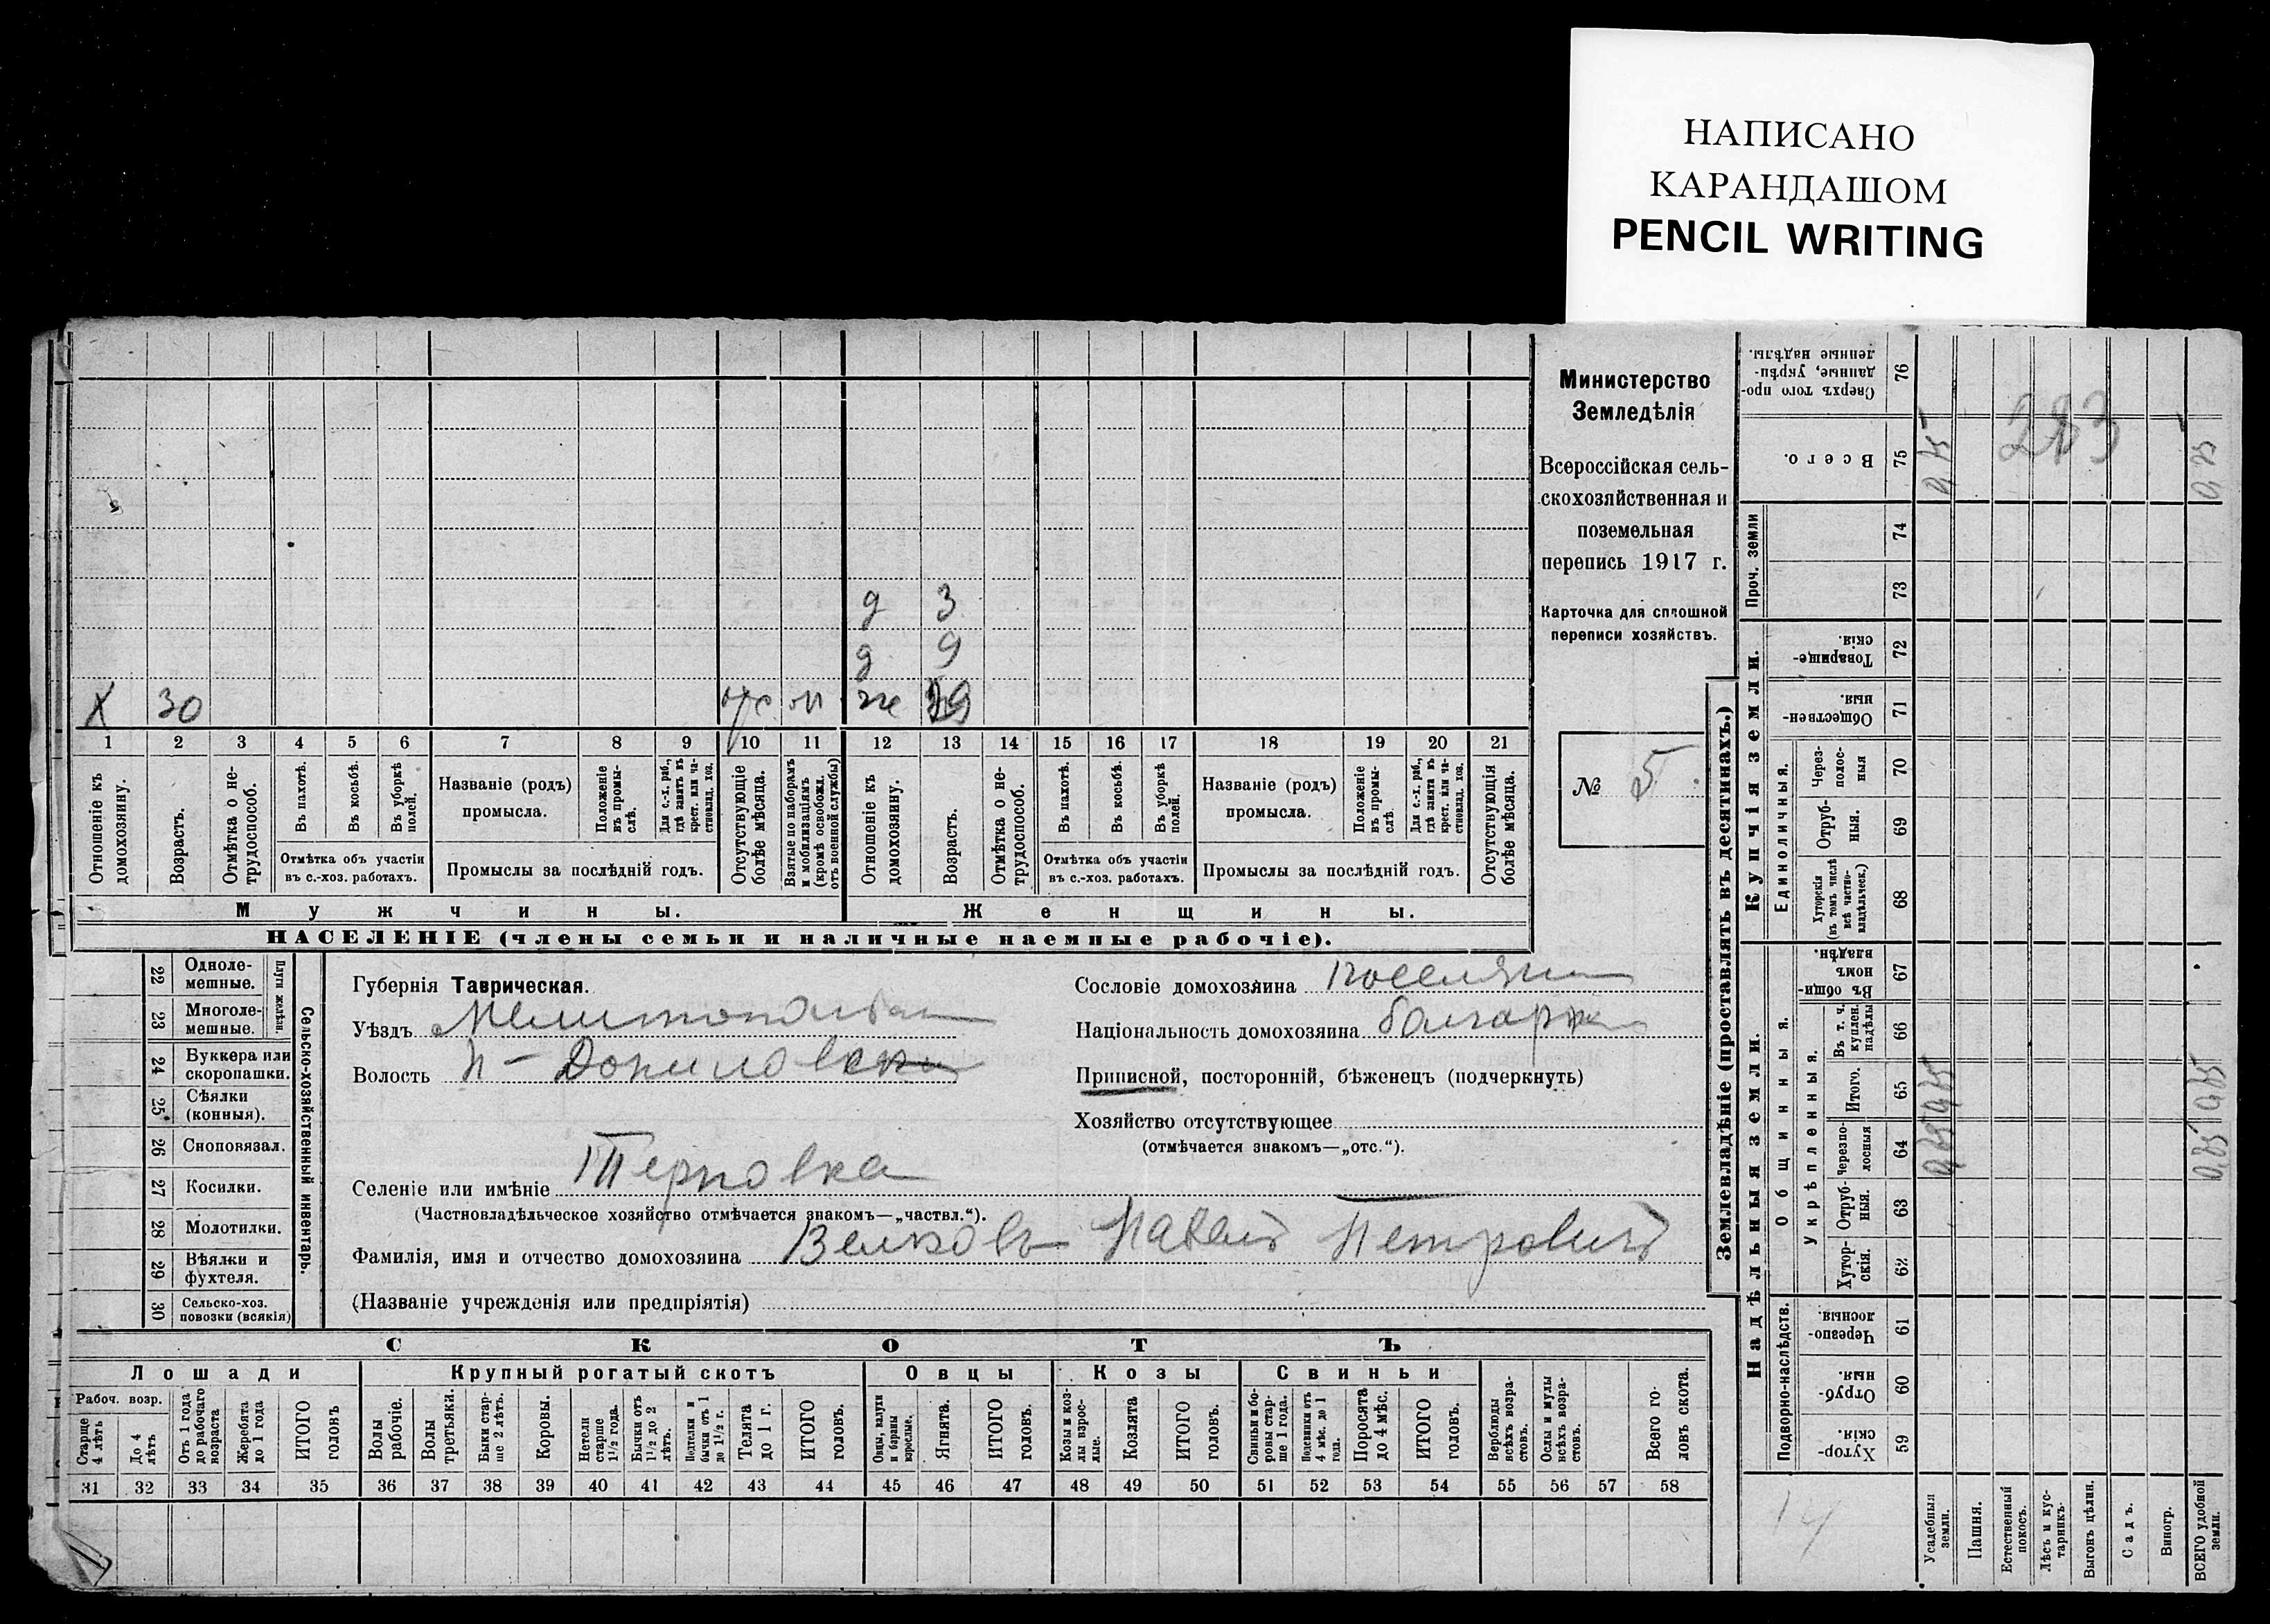 НАПИСАНО
КАРАНДАШОМ
PENCIL WRITING
Министерство
Земледѣлія
Всероссійская сель-
скохозяйственная и
поземельная
перепись 1917 г.
Карточка для сплошной
переписи хозяйствъ.
№ 5
д 3
д 9
Х 30 отс м ж 29
1 2 3 4 5 6 7 8 9 10 11 12 13 14 15 16 17 18 19 20 21
Отношеніе къ домохозяину.
Возрастъ.
Отмѣтка о не-трудоспособ.
Въ пахотѣ.
Въ косьбѣ.
Въ уборкѣ полей.
Отмѣтка объ участіи въ с.-хоз. работахъ.
Названіе (родъ) промысла.
Положеніе въ промы-слѣ.
Для с.-х. раб., гдѣ занятъ въ крест. или ча-стновлад. хоз.
Промыслы за послѣдній годъ.
Отсутствующіе болѣе мѣсяца.
Взятые по наборамъ и мобилизаціямъ (кромѣ освобожд. отъ военной службы)
Отношеніе къ домохозяину.
Возрастъ.
Отмѣтка о не-трудоспособ.
Въ пахотѣ.
Въ косьбѣ.
Въ уборкѣ полей.
Отмѣтка объ участіи въ с.-хоз. работахъ.
Названіе (родъ) промысла.
Положеніе въ промы-слѣ.
Для с.-х. раб., гдѣ занята въ крест. или ча-стновлад. хоз.
Промыслы за послѣдній годъ.
Отсутствующія болѣе мѣсяца.
Мужчины. Женщины.
НАСЕЛЕНІЕ (члены семьи и наличные наемные рабочіе).
Сельско-хозяйственный инвентарь.
Плуги желѣзн.
22 Одноле-мешные.
23 Многоле-мешные.
24 Буккера или скоропашки.
25 Сѣялки (конныя).
26 Сноповязал.
27 Косилки.
28 Молотилки.
29 Вѣялки и фухтеля.
30 Сельско-хоз. повозки (всякія)
Губернія Таврическая.
Уѣздъ
Волость
Селеніе или имѣніе Терновка
(Частновладѣльческое хозяйство отмѣчается знакомъ—„частвл.“).
Фамилія, имя и отчество домохозяина Велковъ Павелъ Петровичъ
(Названіе учрежденія или предпріятія)
Сословіе домохозяина поселянин
Національность домохозяина
Приписной, посторонній, бѣженецъ (подчеркнуть)
Хозяйство отсутствующее
(отмѣчается знакомъ—„отс.“).
СКОТЪ
Лошади Крупный рогатый скотъ Овцы Козы Свиньи
Рабоч. возр.
Старше 4 лѣтъ
До 4 лѣтъ
Отъ 1 года до рабочаго возраста
Жеребята до 1 года
ИТОГО головъ
Волы рабочіе.
Волы третьяки.
Быки стар-ше 2 лѣтъ.
Коровы.
Нетели старше 1½ года.
Бычки отъ 1½ до 2 лѣтъ.
бычки отъ 1 до 1½ г.
Телята до 1 г.
ИТОГО головъ.
Овцы, валухи и бараны взрослые.
Ягнята.
ИТОГО головъ.
Козы и коз-лы взрос-лые.
Козлята
ИТОГО головъ.
Свиньи и бо-ровы стар-ше 1 года.
Подсвинки отъ 4 мѣс. до 1 года.
Поросята до 4 мѣс.
ИТОГО головъ.
Верблюды всѣхъ возра-стовъ.
Ослы и мулы всѣхъ возра-стовъ.
Всего го-ловъ скота.
31 32 33 34 35 36 37 38 39 40 41 42 43 44 45 46 47 48 49 50 51 52 53 54 55 56 57 58
Землевладѣніе (проставлять въ десятинахъ.)
Купчія земли.
Надѣльныя земли.
Сверхъ того про-данные, укрѣп-ленные надѣлы. 76
Всего. 75
Проч. земли 74
73
Товарище-скія. 72
Обществен-ныя. 71
Единоличныя.
Через-полос-ныя 70
Отруб-ныя. 69
Хуторскія (въ томъ числѣ всѣ частно-владѣльческ.) 68
Общинныя.
Въ общи-номъ владѣн. 67
Укрѣпленныя.
Въ т. ч. куплен. надѣлы 66
Итого. 65
Черезпо-лосныя 64
Отруб-ныя. 63
Хутор-скія. 62
Подворно-наслѣдств.
Черезпо-лосныя 61
Отруб-ныя. 60
Хутор-скія. 59
Усадебныя земли.
Пашня.
Естественный покосъ.
Лѣсъ и кус-тарникъ.
Выгонъ цѣлин.
Садъ.
Виногр.
ВСЕГО удобной земли.
14